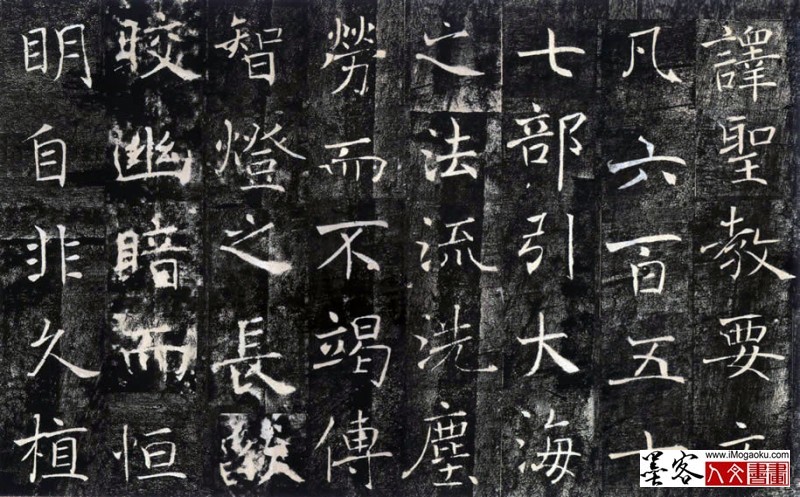 譯聖教要文
凡六百五十
七部引大海
之法流洗塵
勞而不竭傳
智燈之長燄
晈幽暗而恒
眀自非久植
墨客
www.iMogaoku.com
人文書畫